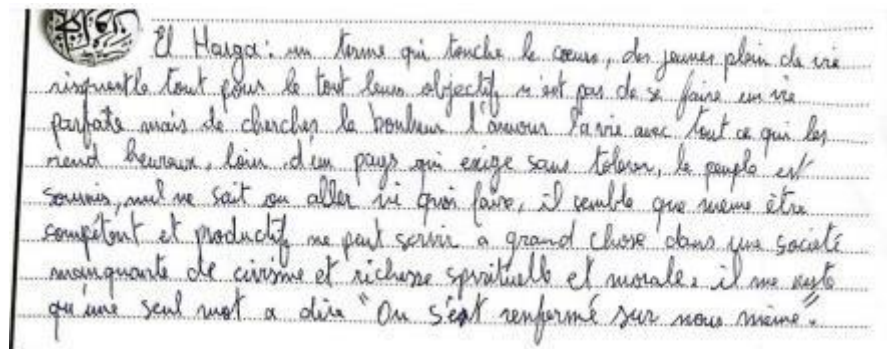 El Harga: un terme qui touche le coeur, des jeunes plein de vie
risquent le tout pour le tout leurs objectifs n'est pas de se faire un vie
parfaite mais de chercher le bonheur l'amour la vie avec tout ce qui les
rend heureux, loin d'un pays qui exige sans tolérer, le peuple est
soumis, nul ne sait ou aller ni quoi faire, il semble que meme être
compétent et productif ne peut servir à grand chose dans une société
manquante de civisme et richesse spirituelle et morale. il me reste
qu'une seul mot a dire "On s'est renfermé sur nous même".